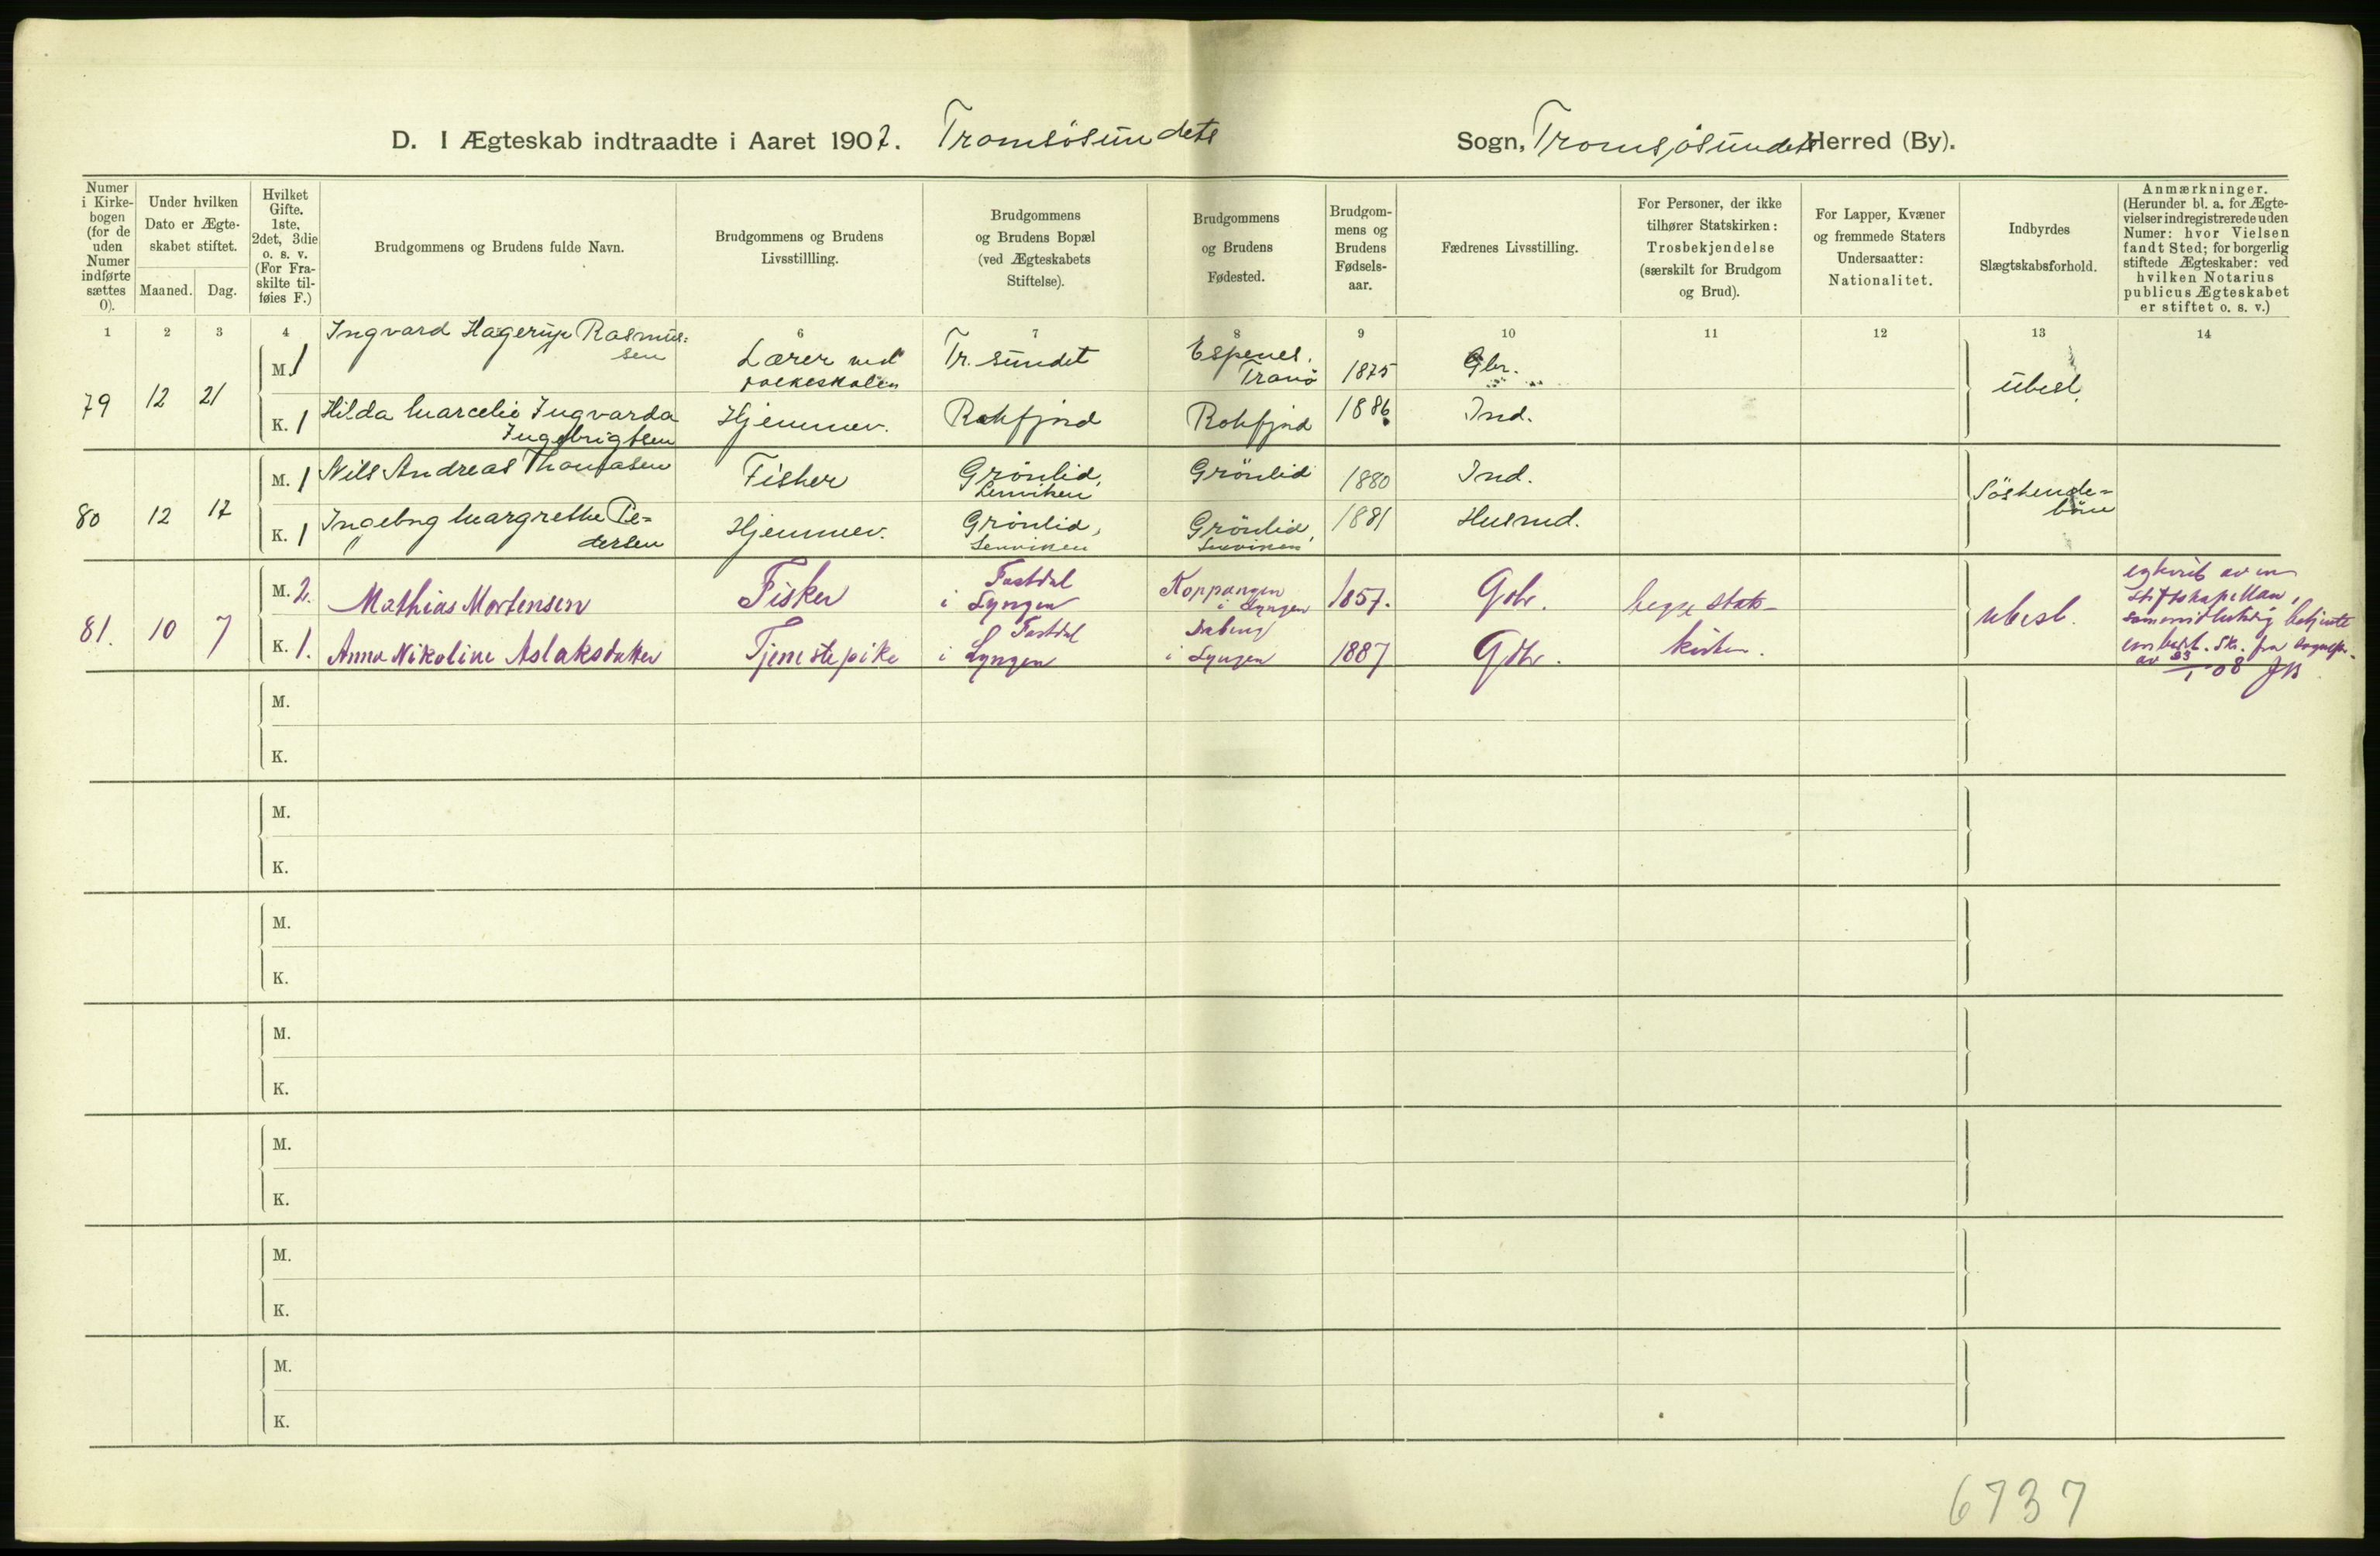 D. I Ægteskab indtraadte i Aaret 1907. Tromsösundets Sogn, Tromsøsundets Herred (By).
Numer i Kirkebogen (for de uden Numer indførte sættes 0).
Under hvilken Dato er Ægteskabet stiftet.
Maaned. Dag.
Hvilket Gifte. 1ste, 2det, 3die o. s. v. (For Fraskilte tilføies F.)
Brudgommens og Brudens fulde Navn.
Brudgommens og Brudens Livsstillling.
Brudgommens og Brudens Bopæl (ved Ægteskabets Stiftelse).
Brudgommens og Brudens Fødested.
Brudgommens og Brudens Fødselsaar.
Fædrenes Livsstilling.
For Personer, der ikke tilhører Statskirken: Trosbekjendelse (særskilt for Brudgom og Brud).
For Lapper, Kvæner og fremmede Staters Undersaatter: Nationalitet.
Indbyrdes Slægtskabsforhold.
Anmærkninger. (Herunder bl. a. for Ægtevielser indregistrerede uden Numer: hvor Vielsen fandt Sted; for borgerlig stiftede Ægteskaber: ved hvilken Notarius publicus Ægteskabet er stiftet o. s. v.)
1 2 3 4 6 7 8 9 10 11 12 13 14
79 12 21
M. 1 Ingvard Hagerup Rasmussen Lærer ved folkeskolen Tr. sundet Espenes, Tranö 1875 Gbr. ubesl.
K. 1 Hilda Marcelie Ingvarda Ingebrigtsen Hjemmev. Rakfjord Rakfjord 1886 Ind.
80 12 17
M. 1 Nils Andreas Thomasen Fisker Grönlid, Lenviken Grönlid 1880 Ind. Söskendebörn
K. 1 Ingebrg Margrethe Pedersen Hjemmev. Grönlid, Lenviken Grönlid, Lenviken 1881 Husmd.
81. 10 7
M. 2. Mathias Mortensen Fisker Fastdal i Lyngen Koppangen i Lyngen 1857. Gdbr. begge stats- ubesl.
K. 1. Anna Nikoline Aslaksdatter Tjenestepike Fastdal i Lyngen i Lyngen 1887 Gdbr. kirken.
stiftskapellan,
av 23/1 08
M.
K.
M.
K.
M.
K.
M.
K.
M.
K.
M.
K.
M.
K.
6737